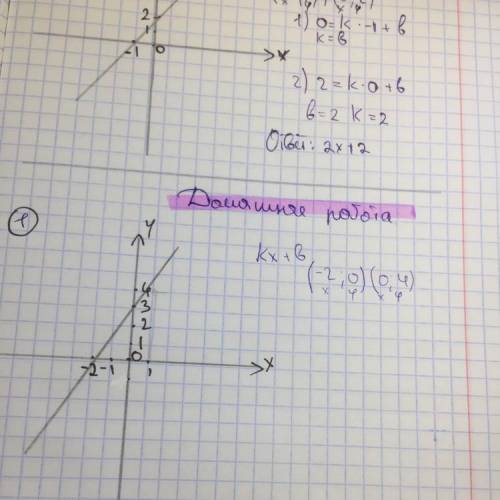 2
1
-1 0 x
1) 0=k·-1+в
k=в
2) 2=k·0+в
в=2 k=2
Ответ: 2x+2
Домашняя работа
1
y
kx+в
(-2;0)(0,4)
x y x y
4
3
2
1
-2 -1 0 1 x